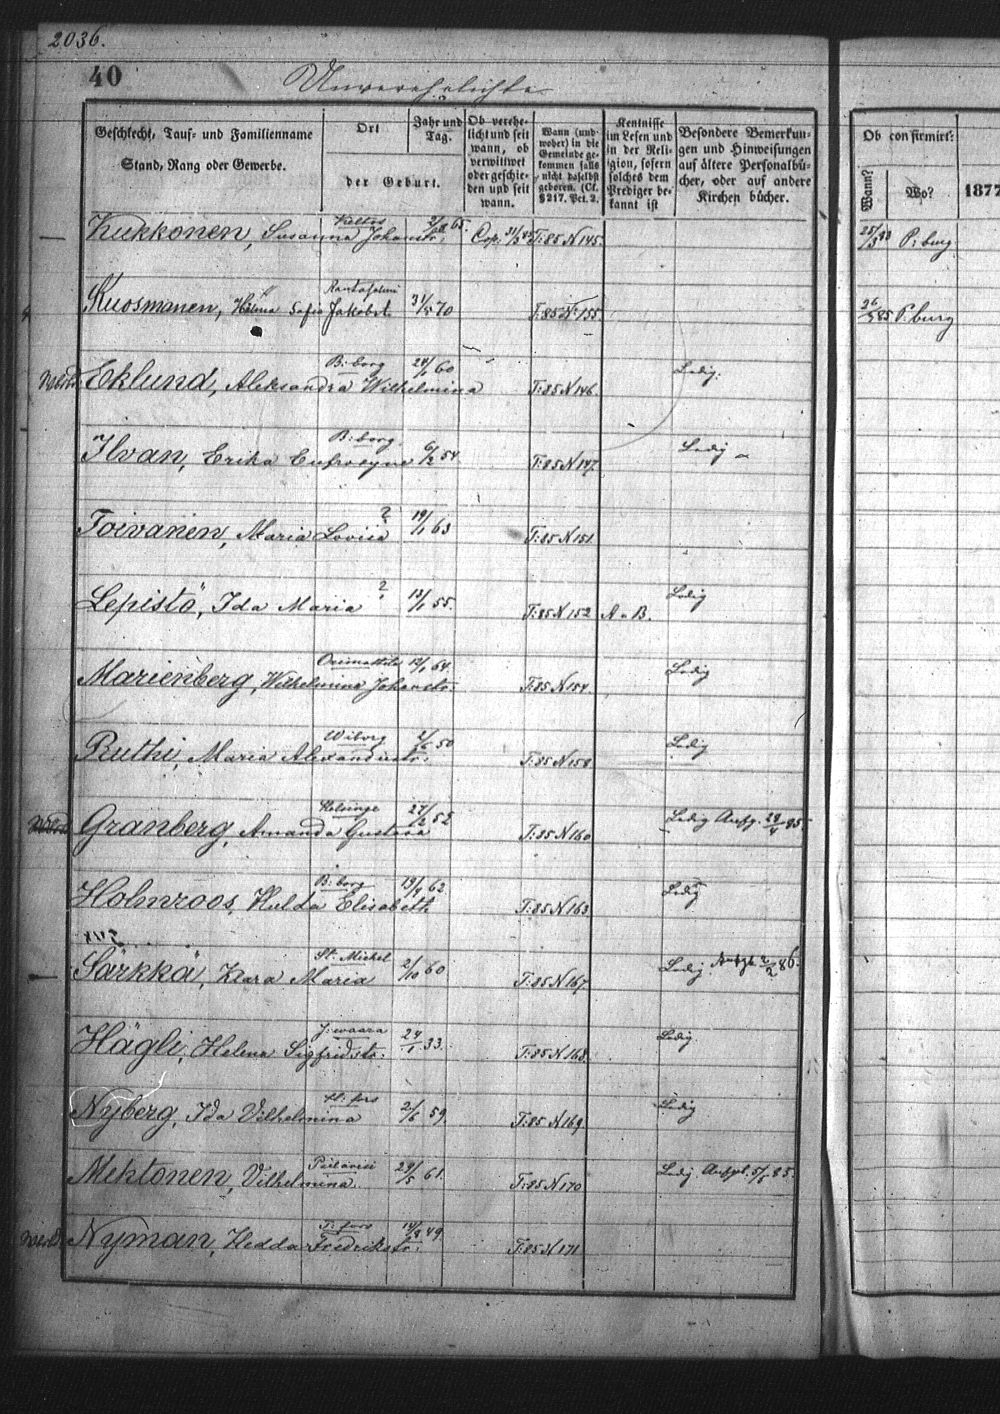 2036.
40
Unverehelichte
Geschlecht, Tauf- und Familienname
Stand, Rang oder Gewerbe.
Ort
der Geburt.
Jahr und
Tag.
Ob verehe-
licht und seit
wann, ob
verwittwet
oder geschie-
den und seit
wann.
Wann (und
woher) in die
Gemeinde ge-
kommen falls
nicht daselbst
geboren. (Cf.
§ 217. Pct. 2.
Kentnisse
im Lesen und
in der Reli-
gion, sofern
solches dem
Prediger be-
kannt ist
Besondere Bemerkun-
gen und Hinweisungen
auf ältere Personalbü-
cher, oder auf andere
Kirchen bücher.
Ob confirmirt:
Wann?
Wo?
1877
Kukkonen, Susanna Johanstr. Valtos 65. Cop. 31/3 85 T: 85 N 145. 25/3 83 P: burg
Kuosmanen, Hilma Sofia Jakobst. Rantasalmi 31/5 70 T: 85 N 155 26/3 85 P: burg
Eklund, Aleksandra Wilhelmina B: borg 24/1 60 T: 85 N 146. Ledig.
Ilvan, Erika Eufrosyne B: borg 6/2 54 T: 85 N 147. Ledig
Toivanen, Maria Lovisa ? 19/1 63 T: 85 N 151.
Lepistö, Ida Maria ? 13/1 55. T: 85 N 152 A u B. Ledig
Marienberg, Wilhelmina Johanstr. Orimattila 12/1 64. T: 85 N 154. Ledig
Ruthi, Maria Alexanderstr. Wiborg 2/6 50 T: 85 N 158 Ledig
Granberg, Amanda Gustava Helsinge 27/2 52 T: 85 N 160. Ledig Aufg. 28/4 85.
Holmroos, Hulda Elisabeth B: borg 19/9 62. T: 85 N 163 Ledig
Särkkä, Klara Maria St. Michel 2/10 60 T: 85 N 167. Ledig. Aufgb. 2/2 86.
Hägli, Helena Sigfridstr. J: waara 24/1 33. T: 85 N 168. Ledig
Nyberg, Ida Vilhelmina H: fors 2/6 59. T: 85 N 169. Ledig
Mehtonen, Vilhelmina Pielavesi 29/5 61. T: 85 N 170 Ledig 5/5 85.
Nyman, Hedda Fredrikstr. T: fors 14/8 49. T: 85 N 171